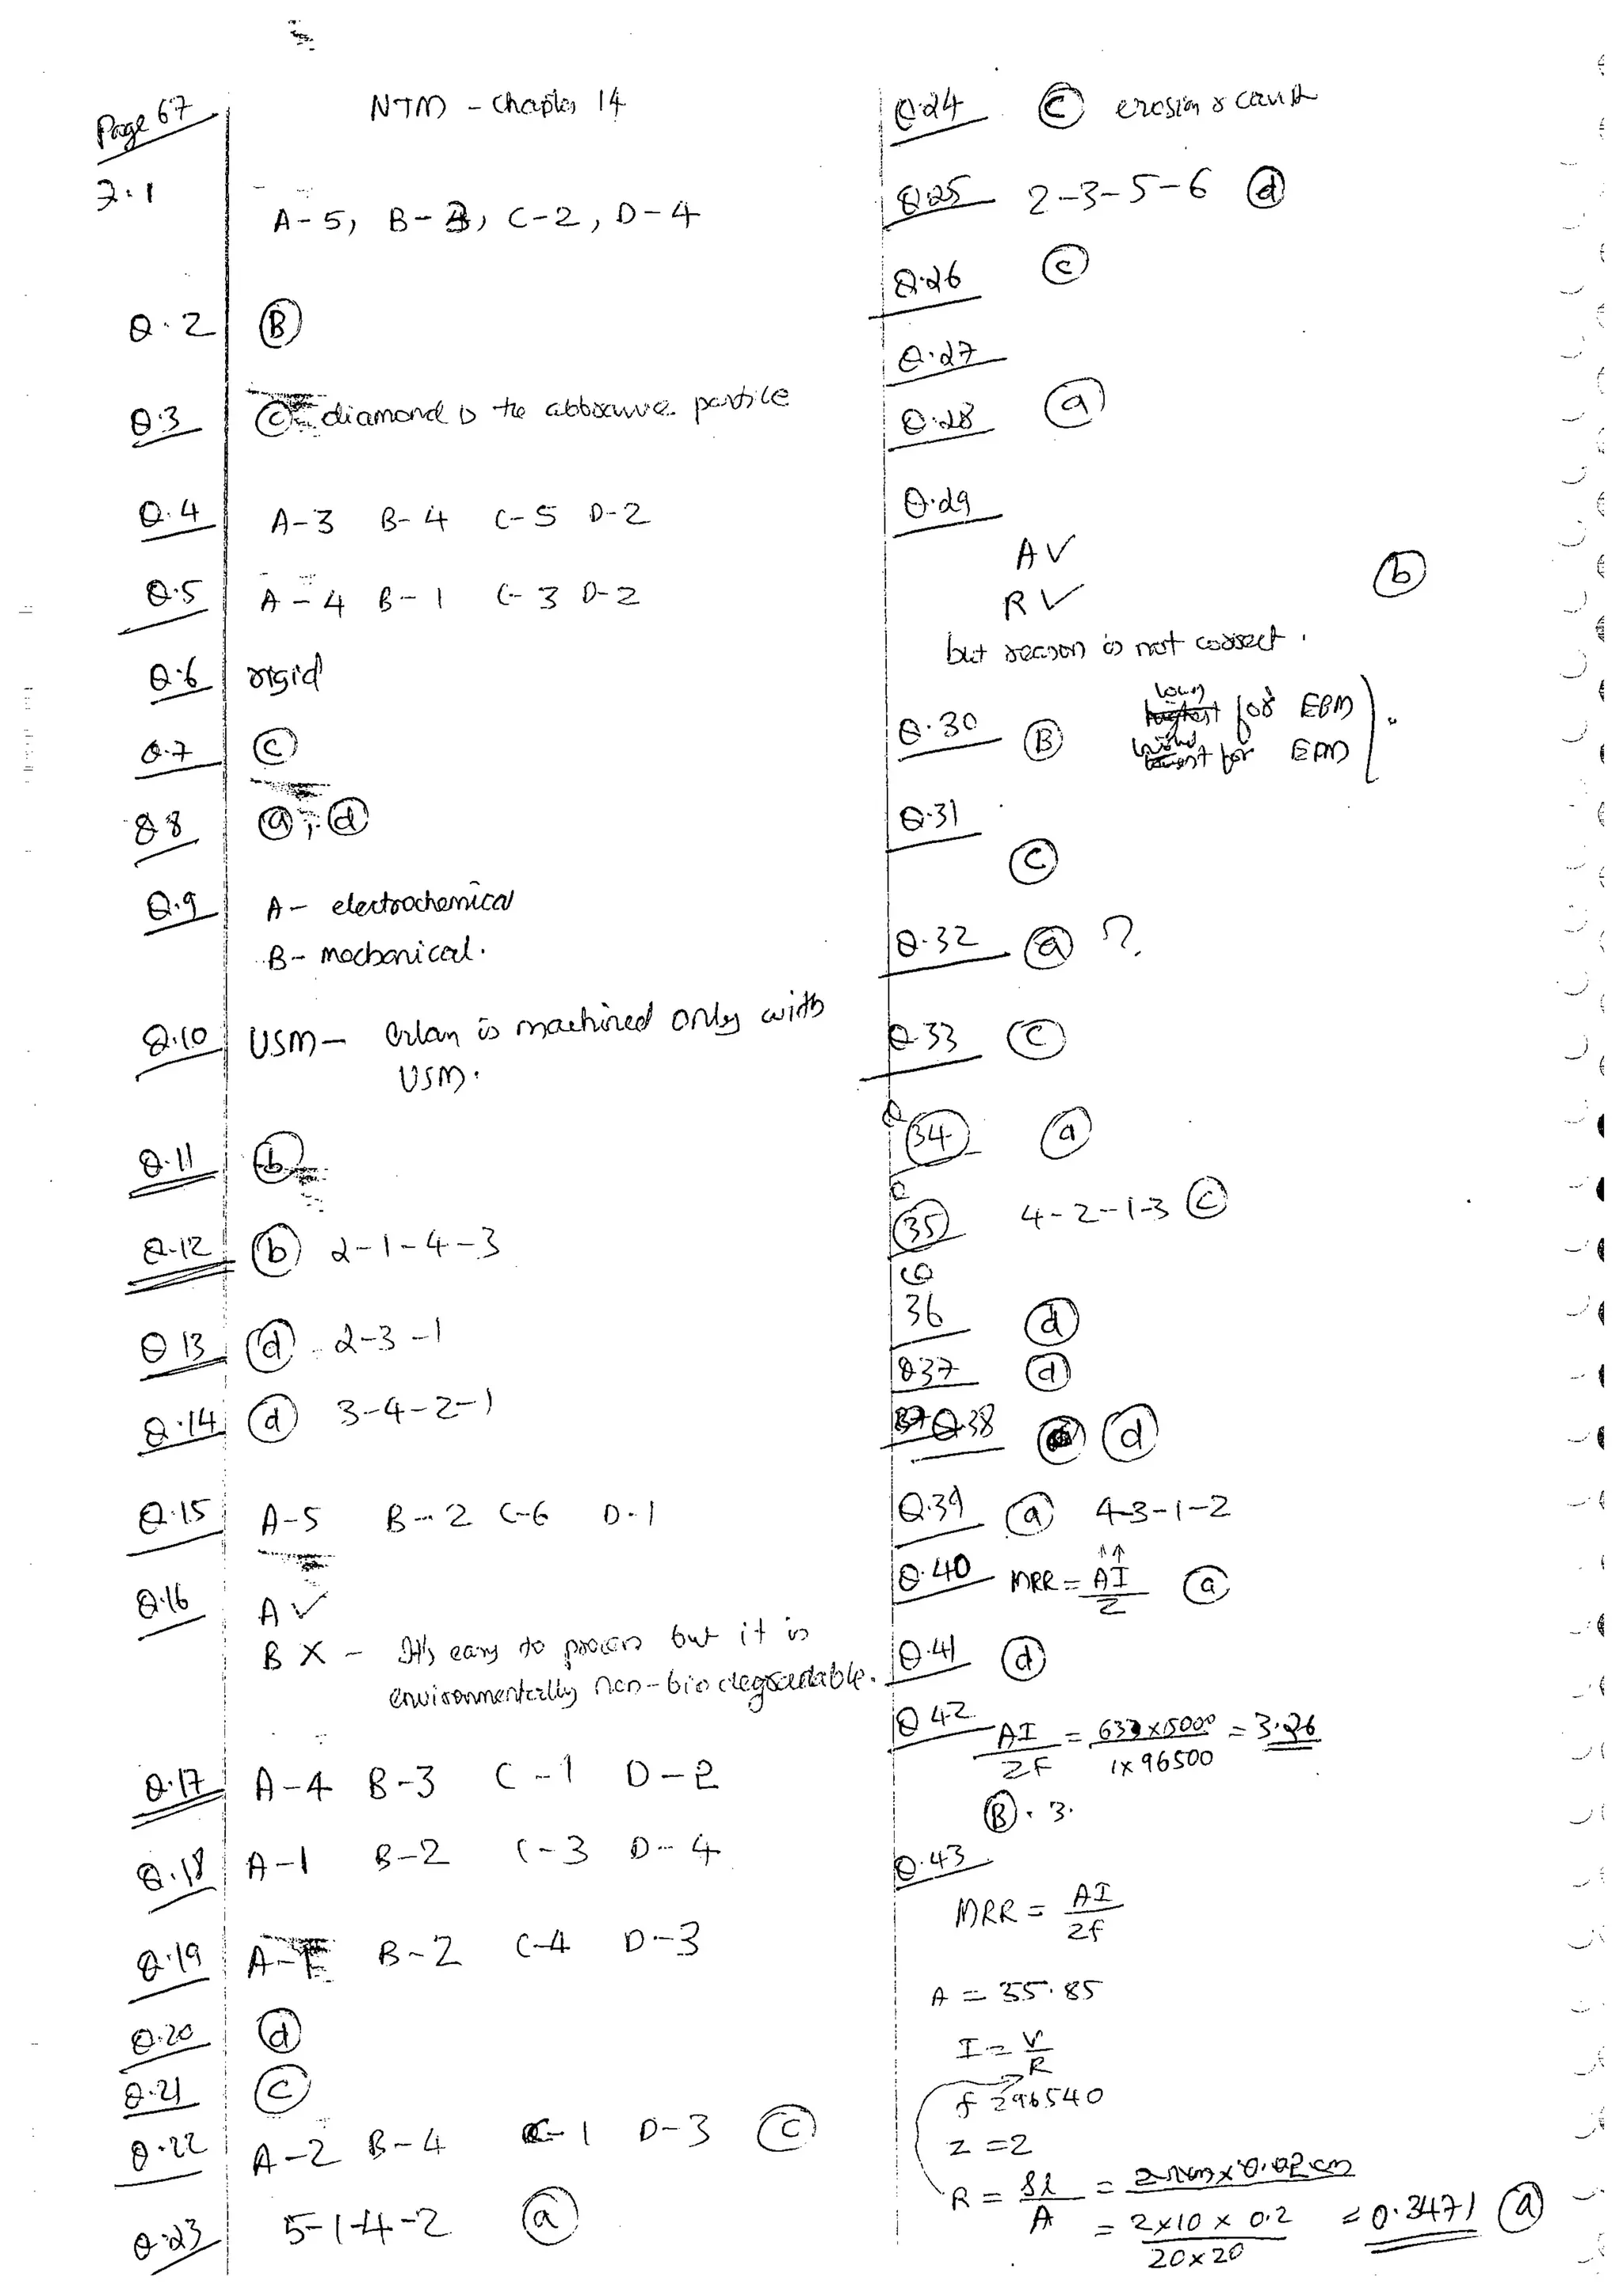 Page 67
NTM - Chapter 14
Q.1 A-5, B-3, C-2, D-4
Q.2 (B)
Q.3 (C) diamond is the abbrasive partile
Q.4 A-3 B-4 C-5 D-2
Q.5 A-4 B-1 C-3 D-2
Q.6 rigid
Q.7 (C)
Q.8 (a), (d)
Q.9 A- electrochemical
B- mechanical.
Q.10 USM- is machined only with
USM.
Q.11 (b)
Q.12 (b) 2-1-4-3
Q.13 (d) 2-3-1
Q.14 (d) 3-4-2-1
Q.15 A-5 B-2 C-6 D-1
Q.16 A ✓
B X - It's easy to process but it is
environmentally non-bio degradable.
Q.17 A-4 B-3 C-1 D-2
Q.18 A-1 B-2 C-3 D-4
Q.19 A-1 B-2 C-4 D-3
Q.20 (d)
Q.21 (C)
Q.22 A-2 B-4 C-1 D-3 (C)
Q.23 5-1-4-2 (a)
Q.24 (C) erosion &
Q.25 2-3-5-6 (d)
Q.26 (C)
Q.27
Q.28 (a)
Q.29
A ✓
R ✓ (b)
but reason is not correct.
Q.30 (B) for EBM
for EDM
Q.31
(C)
Q.32 (a) ?
Q.33 (C)
Q 34 (a)
Q 35 4-2-1-3 (C)
Q 36 (d)
Q37 (d)
Q.38 (d)
Q.39 (a) 4-3-1-2
Q.40 MRR = AI/Z (a)
Q.41 (d)
Q 42 AI/ZF = 63×5000/1×96500 = 3.26
(B). 3.
Q.43
MRR = AI/ZF
A = 55.85
I = V/R
f = 96540
Z = 2
R = ρl/A =
= 2×10×0.2/20×20 = 0.3471 (a)